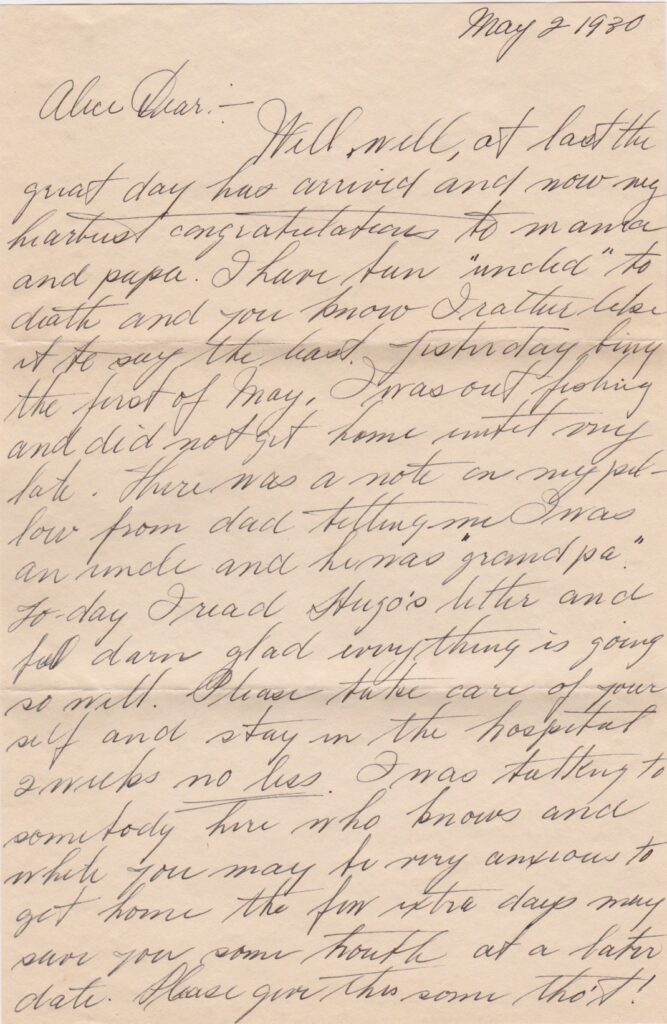 May 2 1930
Alice Dear:—
Well, well, at last the
great day has arrived and now my
heartiest congratulations to mama
and papa. I have been "uncled" to
death and you know I rather like
it to say the least. Yesterday being
the first of May, I was out fishing
and did not get home until very
late. There was a note on my pil-
low from dad telling me I was
an uncle and he was "grandpa."
To-day I read Hugo's letter and
feel darn glad everything is going
so well. Please take care of your
self and stay in the hospital
2 weeks no less. I was talking to
somebody here who knows and
while you may be very anxious to
get home the few extra days may
save you some trouble at a later
date. Please give this some tho't!